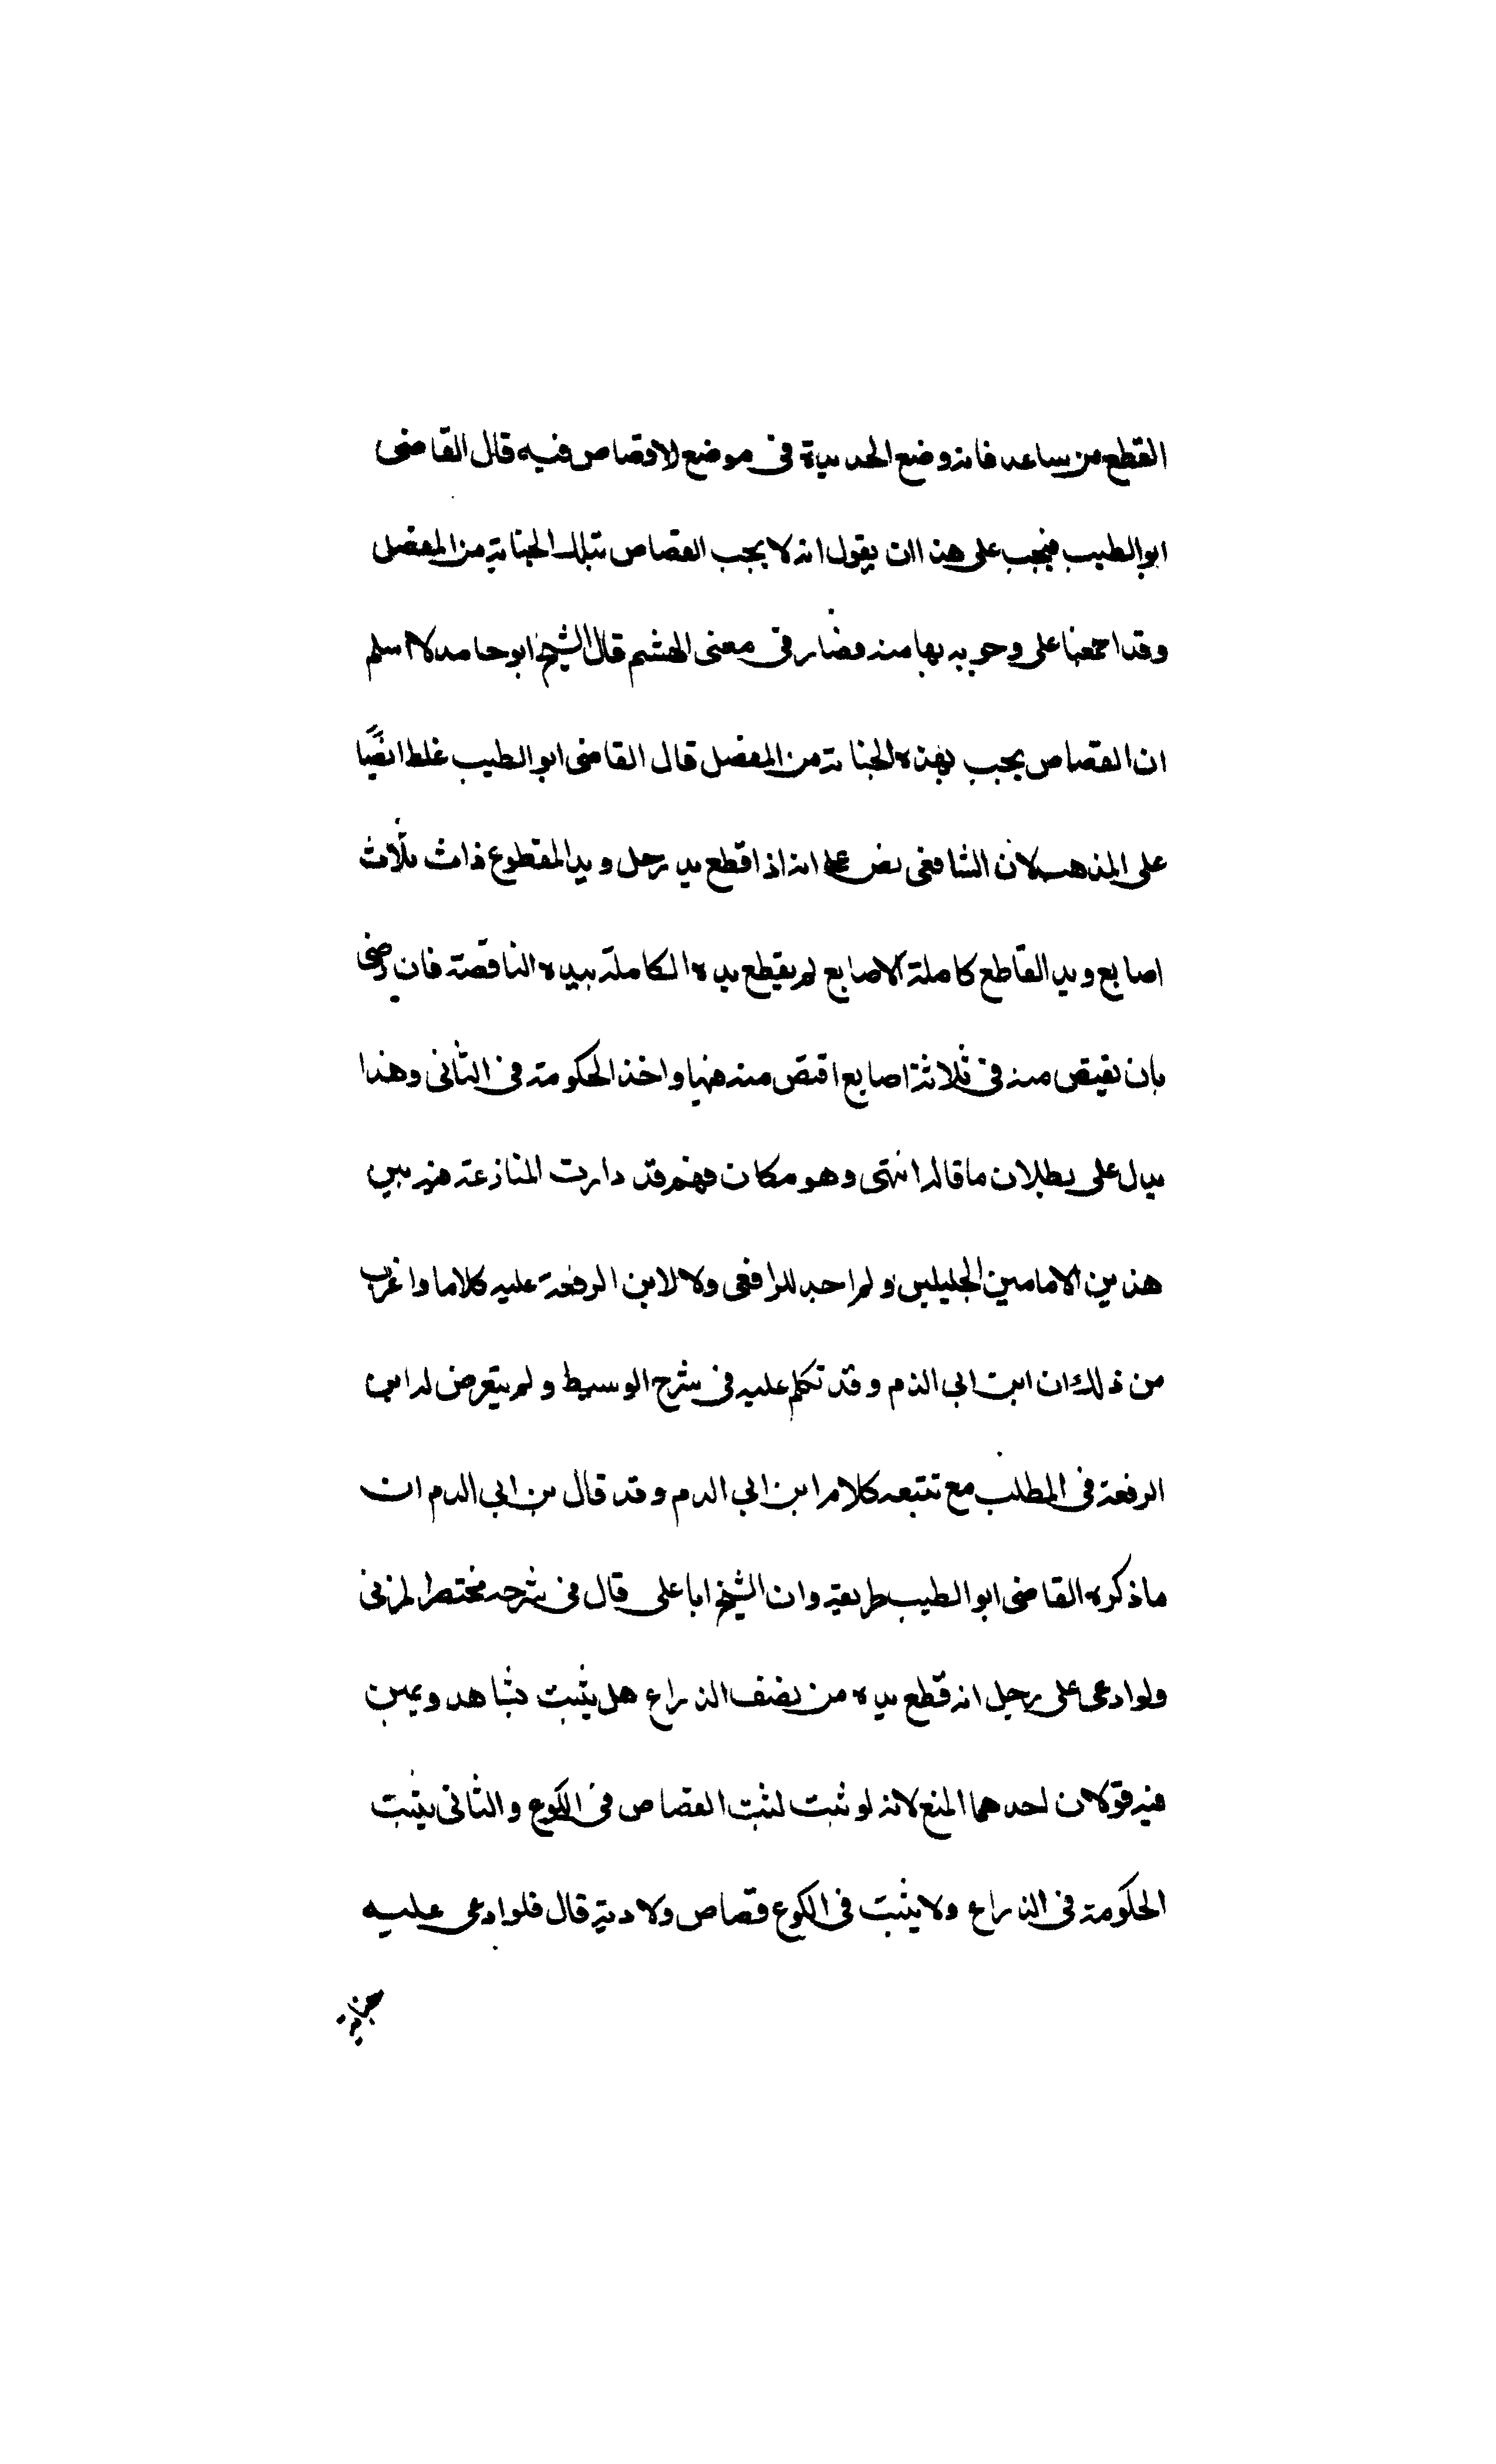 القطع من ساعد فانه وضع الحديدة في موضع لا قصاص فيه قال القاضى
ابو الطيب فيجب على هذا ان يقول انه لا يجب القصاص بتلك الجناية من المفصل
وقد اجمعنا على وجوبه بها منه فصار في معنى الهشم قال الشيخ ابو حامد لا اسلم
ان القصاص يجب بهذه الجناية من المفصل قال القاضى ابو الطيب غلط ايضًا
على المذهب لان الشافعى نص على انه اذا قطع يد رجل ويد المقطوع ذات ثلاث
اصابع ويد القاطع كاملة الاصابع لم يقطع يده الكاملة بيده الناقصة فان رضى
بان يقتص منه في ثلاثة اصابع اقتص منه فيها واخذ الحكومة في الثانى وهذا
يدل على بطلان ما قاله انتهى وهو مكان فهم قد دارت المنازعة فيه بين
هذين الامامين الجليلين ولم اجد للرافعى ولا لابن الرفعة عليه كلاما واغرب
من ذلك ان ابن ابى الدم وقد تكلم عليه في شرح الوسيط ولم يتعرض له ابن
الرفعة في المطلب مع تتبعه كلام ابن ابى الدم وقد قال بن ابى الدم ان
ما ذكره القاضى ابو الطيب طريقة وان الشيخ ابا على قال في شرحه مختصر المزنى
ولو ادعى على رجل انه قطع يده من نصف الذراع هل يثبت بشاهد ويمين
فيه قولان احدهما المنع لانه لو ثبت لثبت القصاص في الكوع والثانى يثبت
الحكومة في الذراع ولا يثبت في الكوع قصاص ولا دية قال فلو ادعى عليه
جناية